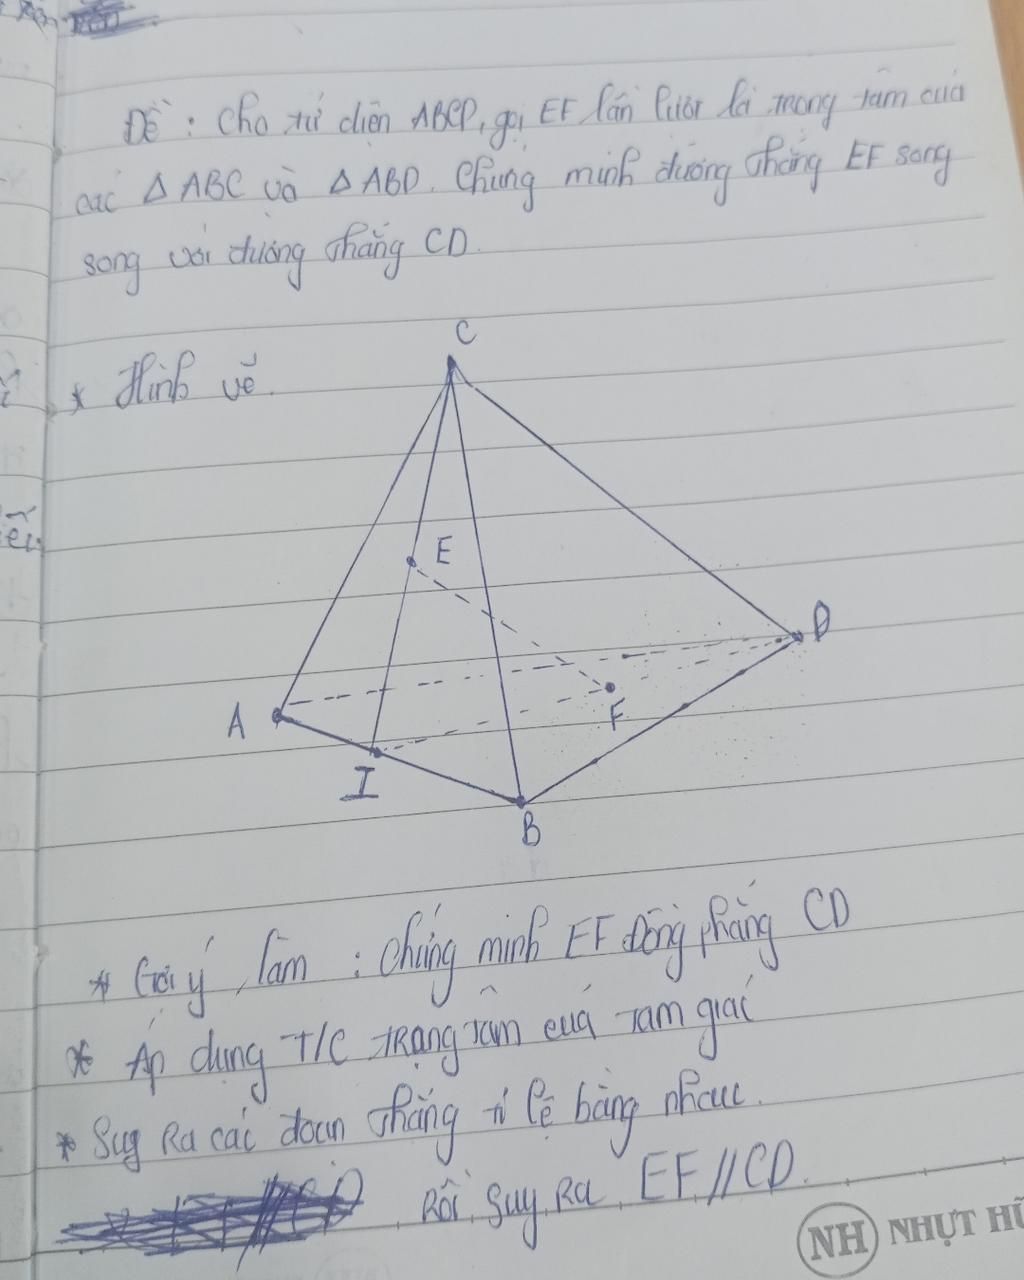 Đề: Cho tứ diện ABCD, gọi EF lần lượt là trọng tâm của
các △ ABC và △ ABD. Chứng minh đường thẳng EF song
song với đường thẳng CD.
* Hình vẽ.
C
E
D
A
F
I
B
* Gợi ý làm : Chứng minh EF Đồng phẳng CD
* Áp dụng T/C trọng tâm của tam giác
* Suy Ra các đoạn thẳng tỉ lệ bằng nhau.
Rồi Suy Ra EF // CD.
NH NHỰT HỮ